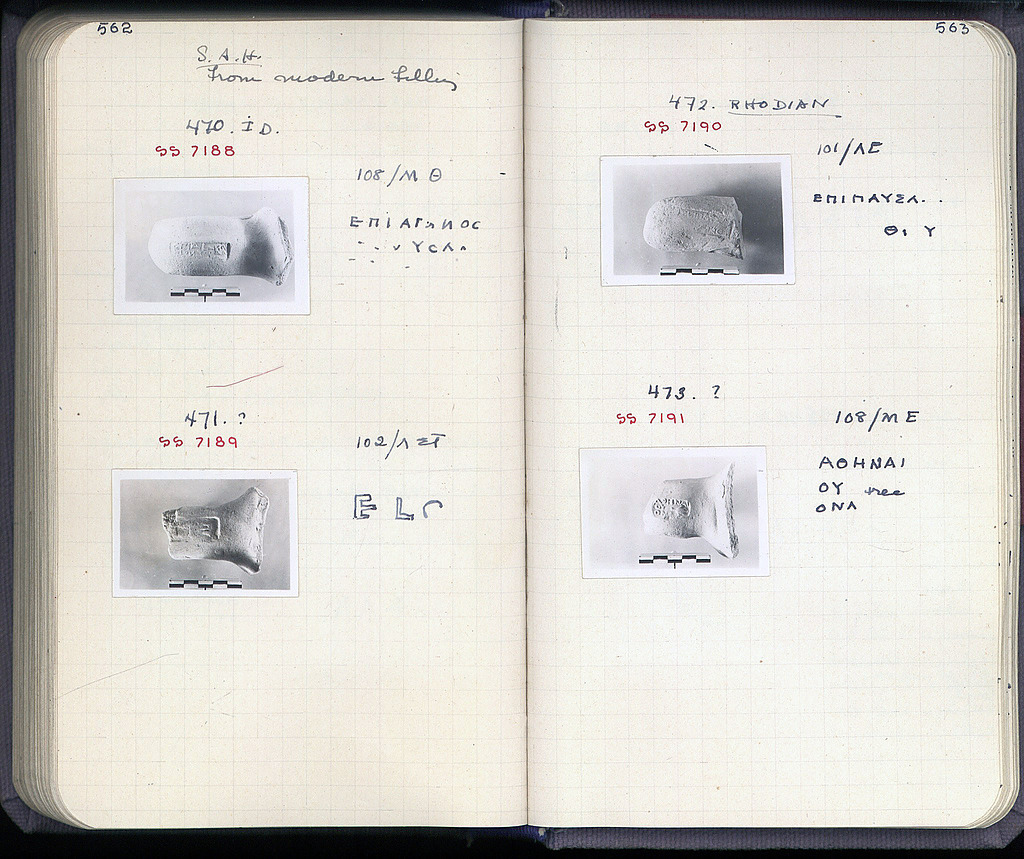 562
S.A.H.
From modern filling
470. ID.
SS 7188
108/Μ Θ
ΕΠΙΑΓΩΝΟΣ
471. ?
SS 7189
102/Λ ΣΤ
E L
563
472. RHODIAN
SS 7190
101/ΛΕ
ΕΠΙΠΑΥΣΑ..
Θι Υ
473. ?
SS 7191
108/Μ Ε
ΑΘΗΝΑΙ
ΟΥ tree
ΟΝΑ